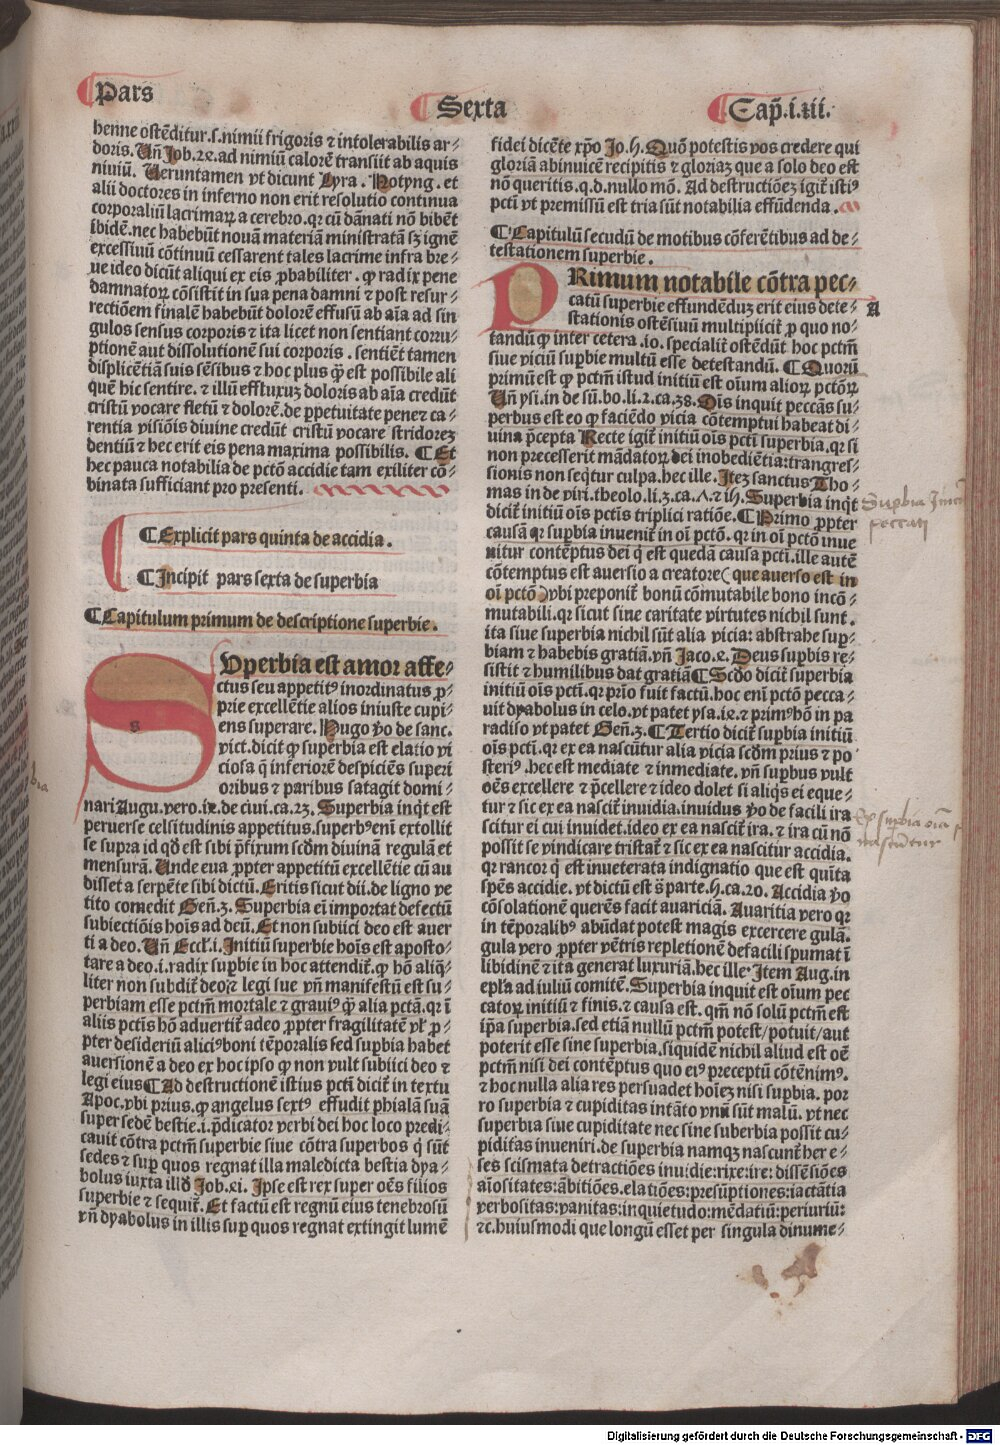 Pars
Sexta
Cap̃.i.⁊ii.
henne ostẽditur.s.nimii frigoris ⁊ intolerabilis ar⸗
doris. Uñ Job.2e.ad nimiũ calorẽ transiit ab aquis
niuiũ. Ueruntamen vt dicunt Lyra. Notyng. et
alii doctores in inferno non erit resolutio continua
corporaliũ lacrimaꝝ a cerebro.qꝛ cũ dãnati nõ bibẽt
ibidẽ.nec habebũt nouã materiã ministratã sꝫ ignẽ
excessiuũ cõtinuũ cessarent tales lacrime infra bre⸗
ue ideo dicũt aliqui ex eis ꝓbabiliter. ꝙ radix pene
damnatoꝝ cõsistit in sua pena damni ⁊ post resur⸗
rectiõem finalẽ habebũt dolorẽ effusũ ab aĩa ad sin
gulos sensus corporis ⁊ ita licet non sentiant corru⸗
ptionẽ aut dissolutionẽ sui corporis. sentiẽt tamen
displicẽtiã suis sẽsibus ⁊ hoc plus q̃ est possibile ali
quẽ hic sentire. ⁊ illũ effluxuꝫ doloris ab aĩa credũt
cristũ vocare fletũ ⁊ dolorẽ.de ꝑpetuitate peneꝫ ca⸗
rentia visiõis diuine credũt cristũ vocare stridoreꝫ
dentiũ ⁊ hec erit eis pena maxima possibilis. ¶Et
hec pauca notabilia de pctõ accidie tam exiliter cõ⸗
binata sufficiant pro presenti.
¶Explicit pars quinta de accidia.
¶Incipit pars sexta de superbia
¶Capitulum primum de descriptione superbie.
SUperbia est amor affe⸗
ctus seu appetitꝰ inordinatus ꝓ⸗
prie excellẽtie alios iniuste cupi⸗
ens superare. Hugo ꝟo de sanc.
vict.dicit ꝙ superbia est elatio vi
ciosa q̃ inferiorẽ despiciẽs superi
oribus ⁊ paribus satagit domi⸗
nari Augu.vero.ie.de ciui.ca.23. Superbia inq̃t est
peruerse celsitudinis appetitus.superbꝰeni extollit
se supra id qd̃ est sibi p̃fixum scdm̃ diuinã regulã et
mensurã. Unde eua ꝓpter appetitũ excellẽtie cũ au
disset a serpẽte sibi dictũ. Eritis sicut dii.de ligno ve
tito comedit Geñ.3. Superbia ei importat defectũ
subiectiõis hoĩs ad deũ. Et non subiici deo est auer
ti a deo. Uñ Eccl̃.i. Initiũ superbie hoĩs est aposto⸗
tare a deo.i.radix supꝛbie in hoc attendit̃.ꝙ hõ aliq̃⸗
liter non subdit̃ deo.⁊ legi sue vñ manifestũ est su⸗
perbiam esse pctm̃ mortale ⁊ grauiꝰ q̃ alia pctã.qꝛ ĩ
aliis pctĩs hõ aduertit̃ adeo ꝓpter fragilitatẽ vl̃ ꝓ⸗
pter desideriũ aliciꝰboni tẽporalis sed supꝛbia habet
auersionẽ a deo ex hoc ipso ꝙ non vult subiici deo ⁊
legi eius¶Ad destructionẽ istius pcti dicit̃ in textu
Apoc.vbi prius.ꝙ angelus sextꝰ effudit phialã suã
super sedẽ bestie.i.p̃dicator verbi dei hoc loco predi⸗
cauit cõtra pctm̃ superbie siue cõtra superbos q̃ sũt
sedes ⁊ sup̃ quos regnat illa maledicta bestia dya⸗
bolus iuxta illd̃ Job.ei. Ipse est rex super oẽs filios
superbie ⁊ sequit̃. Et factũ est regnũ eius tenebrosũ
vñ dyabolus in illis sup̃ quos regnat extingit lumẽ
fidei dicẽte xp̃o Jo.ꝟ. Quõ potestis vos credere qui
gloriã abinuicẽ recipitis ⁊ gloriaꝫ que a solo deo est
nõ queritis.q.d.nullo mõ. Ad destructiõeꝫ igit̃ istiꝰ
pcti vt premissũ est tria sũt notabilia effũdenda.
¶Capitulũ secudũ de motibus cõferẽtibus ad de⸗
testationem superbie.
PRimum notabile cõtra pec⸗
catũ superbie effundẽduꝫ erit eius dete⸗
stationis ostẽsiuũ multipiicit̃ ꝓ quo no⸗
tandũ ꝙ inter cetera.io.specialit̃ ostẽdũt hoc pctm̃
siue viciũ supꝛbie multũ esse detestandũ. ¶Quorũ
primũ est ꝙ pctm̃ istud initiũ est oĩum alioꝝ pctõꝝ
Uñ ysi.in de sũ.bo.li.2.ca.38. Oĩs inquit peccãs su⸗
perbus est eo ꝙ faciẽdo vicia cõtemptui habeat di⸗
uina p̃cepta Recte igit̃ initiũ oĩs pcti superbia.qꝛ si
non precesserit mãdatoꝝ dei inobediẽtia:trangres⸗
sionis non seq̃tur culpa.hec ille. Iteꝫ sanctus Tho⸗
mas in de viri.theolo.li.3.ca.ʌ.⁊ iꝟ. Superbia inq̃t
dicit̃ initiũ oĩs pctĩs triplici ratiõe.¶Primo ꝓpter
causã qꝛ supꝛbia inuenit̃ in oĩ pctõ.qꝛ in oĩ pctõ inue
nitur contẽptus dei q̃ est quedã causa pcti.ille autẽ
cõtemptus est auersio a creatore(que auerso est in
oĩ pctõ)vbi preponit̃ bonũ cõmutabile bono incõ⸗
mutabili.qꝛ sicut sine caritate virtutes nichil sunt.
ita siue superbia nichil sũt alia vicia: abstrahe sup̃⸗
biam ⁊ habebis gratiã.vñ Jaco.e. Deus supꝛbis re⸗
sistit ⁊ humilibus dat gratiã¶Scdo dicit̃ superbia
initiũ oĩs pcti.qꝛ prĩo fuit factũ.hoc eni pctõ pecca⸗
uit dyabolus in celo.vt patet ysa.ie.⁊ primꝰhõ in pa
radiso vt patet Geñ.3.¶Tertio dicit̃ supꝛbia initiũ
oĩs pcti.qꝛ ex ea nascũtur alia vicia scdm̃ prius ⁊ po
steriꝰ.hec est mediate ⁊ inmediate.vñ supꝛbus vult
oẽs excellere ⁊ p̃cellere ⁊ ideo dolet si aliq̃s ei eque⸗
tur ⁊ sic ex ea nascit̃ inuidia.inuidus ꝟo de facili ira
scitur ei cui inuidet.ideo ex ea nascit̃ ira.⁊ ira cũ nõ
possit se vindicare tristat̃ ⁊ sic ex ea nascitur accidia.
qꝛ rancor q̃ est inueterata indignatio que est quĩta
spẽs accidie.vt dictũ est sꝫ parte.ꝟ.ca.20. Accidia ꝟo
cõsolationẽ querẽs facit auariciã. Auaritia vero qꝛ
in tẽporalibꝰ abũdat potest magis excercere gulã.
gula vero ꝓpter vẽtris repletionẽ defacili spumat ĩ
libidinẽ ⁊ ita generat luxuriã.hec ille. Item Aug.in
epl̃a ad iuliũ comitẽ. Superbia inquit est oĩum pec
catoꝝ initiũ ⁊ finis.⁊ causa est.qm̃ nõ solũ pctm̃ est
ip̃a superbia.sed etiã nullũ pctm̃ potest/potuit/aut
poterit esse sine superbia.siquidẽ nichil aliud est oẽ
pctm̃ nisi dei contẽptus quo eiꝰ preceptũ cõtẽnimꝰ.
⁊ hoc nulla alia res persuadet hoĩeꝫ nisi supꝛbia.por
ro superbia ⁊ cupiditas intãto vnũ sũt malũ.vt nec
superbia siue cupiditate nec sine suberbia possit cu⸗
piditas inueniri.de superbia namqꝫ nascunt̃ her e⸗
ses scismata detractiões inuidie:rixe:ire:dissẽsiões
aĩositates:ãbitiões.elatiões:presũptiones:iactãtia
verbositas:vanitas:inquietudo:mẽdatiũ:periuriũ:
⁊c.huiusmodi que longũ esset per singula dinume⸗
A
Supbia Initiũ
peccati
Ex supbia oĩa
nascũtur
Digitalisierung gefördert durch die Deutsche Forschungsgemeinschaft - DFG